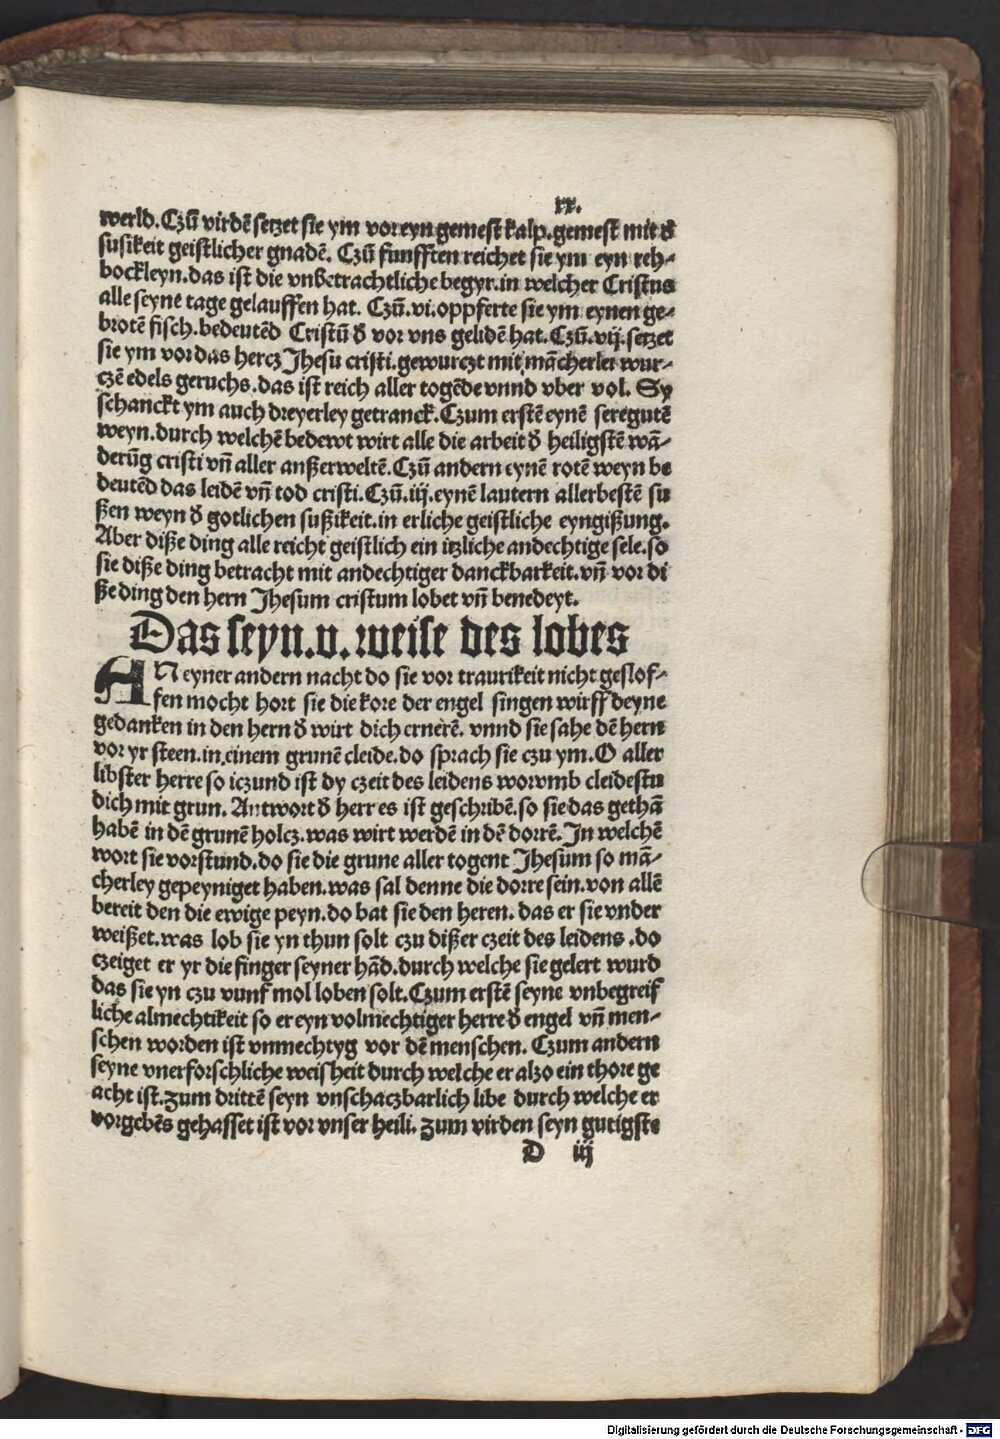 xx.
werld. Czū virdē setzet sie ym vor eyn gemest kalp. gemest mit d̕
susikeit geistlicher gnadē. Czū funfften reichet sie ym eyn reh⸗
bockleyn. das ist die vnbetrachtliche begyr. in welcher Cristus
alle seyne tage gelauffen hat. Czū. vi. oppferte sie ym eynen ge⸗
brotē fisch. bedeutēd Cristū d̕ vor vns gelidē hat. Czū. vij. setzet
sie ym vor das hercz Jhesu cristi. gewurczt mit mācherlei wur⸗
czē edels geruchs. das ist reich aller togēde vnnd vber vol. Sy
schanckt ym auch dreyerley getranck. Czum erstē eynē sere gutē
weyn. durch welchē bedewt wirt alle die arbeit d̕ heiligstē wā⸗
derūg cristi vn̄ aller außerweltē. Czū andern eynē rotē weyn be
deutēd das leidē vn̄ tod cristi. Czū. iij. eynē lautern allerbestē su
ßen weyn d̕ gotlichen sußikeit. in erliche geistliche eyngißung.
Aber diße ding alle reicht geistlich ein itzliche andechtige sele. so
sie diße ding betracht mit andechtiger danckbarkeit. vn̄ vor di
ße ding den hern Jhesum cristum lobet vn̄ benedeyt.
Das seyn. v. weise des lobes
AN eyner andern nacht do sie vor traurikeit nicht geslof⸗
fen mocht hort sie die kore der engel singen wirff deyne
gedanken in den hern d̕ wirt dich ernerē. vnnd sie sahe dē hern
vor yr steen. in einem grunē cleide. do sprach sie czu ym. O aller
libster herre so iczund ist dy czeit des leidens worvmb cleidestu
dich mit grun. Antwort d̕ herr es ist geschribē. so sie das gethā
habē in dē grunē holcz. was wirt werdē in dē dorrē. In welchē
wort sie vorstund. do sie die grune aller togent Jhesum so mā⸗
cherley gepeyniget haben. was sal denne die dorre sein. von allē
bereit den die ewige peyn. do bat sie den heren. das er sie vnder
weißet. was lob sie yn thun solt czu dißer czeit des leidens . do
czeiget er yr die finger seyner hād. durch welche sie gelert wurd
das sie yn czu vunf mol loben solt. Czum erstē seyne vnbegreif
liche almechtikeit so er eyn volmechtiger herre d̕ engel vn̄ men⸗
schen worden ist vnmechtyg vor dē menschen. Czum andern
seyne vnerforschliche weisheit durch welche er alzo ein thore ge
acht ist. zum drittē seyn vnschaczbarlich libe durch welche er
vorgebēs gehasset ist vor vnser heili. zum virden seyn gutigste
D iij
Digitalisierung gefördert durch die Deutsche Forschungsgemeinschaft - DFG